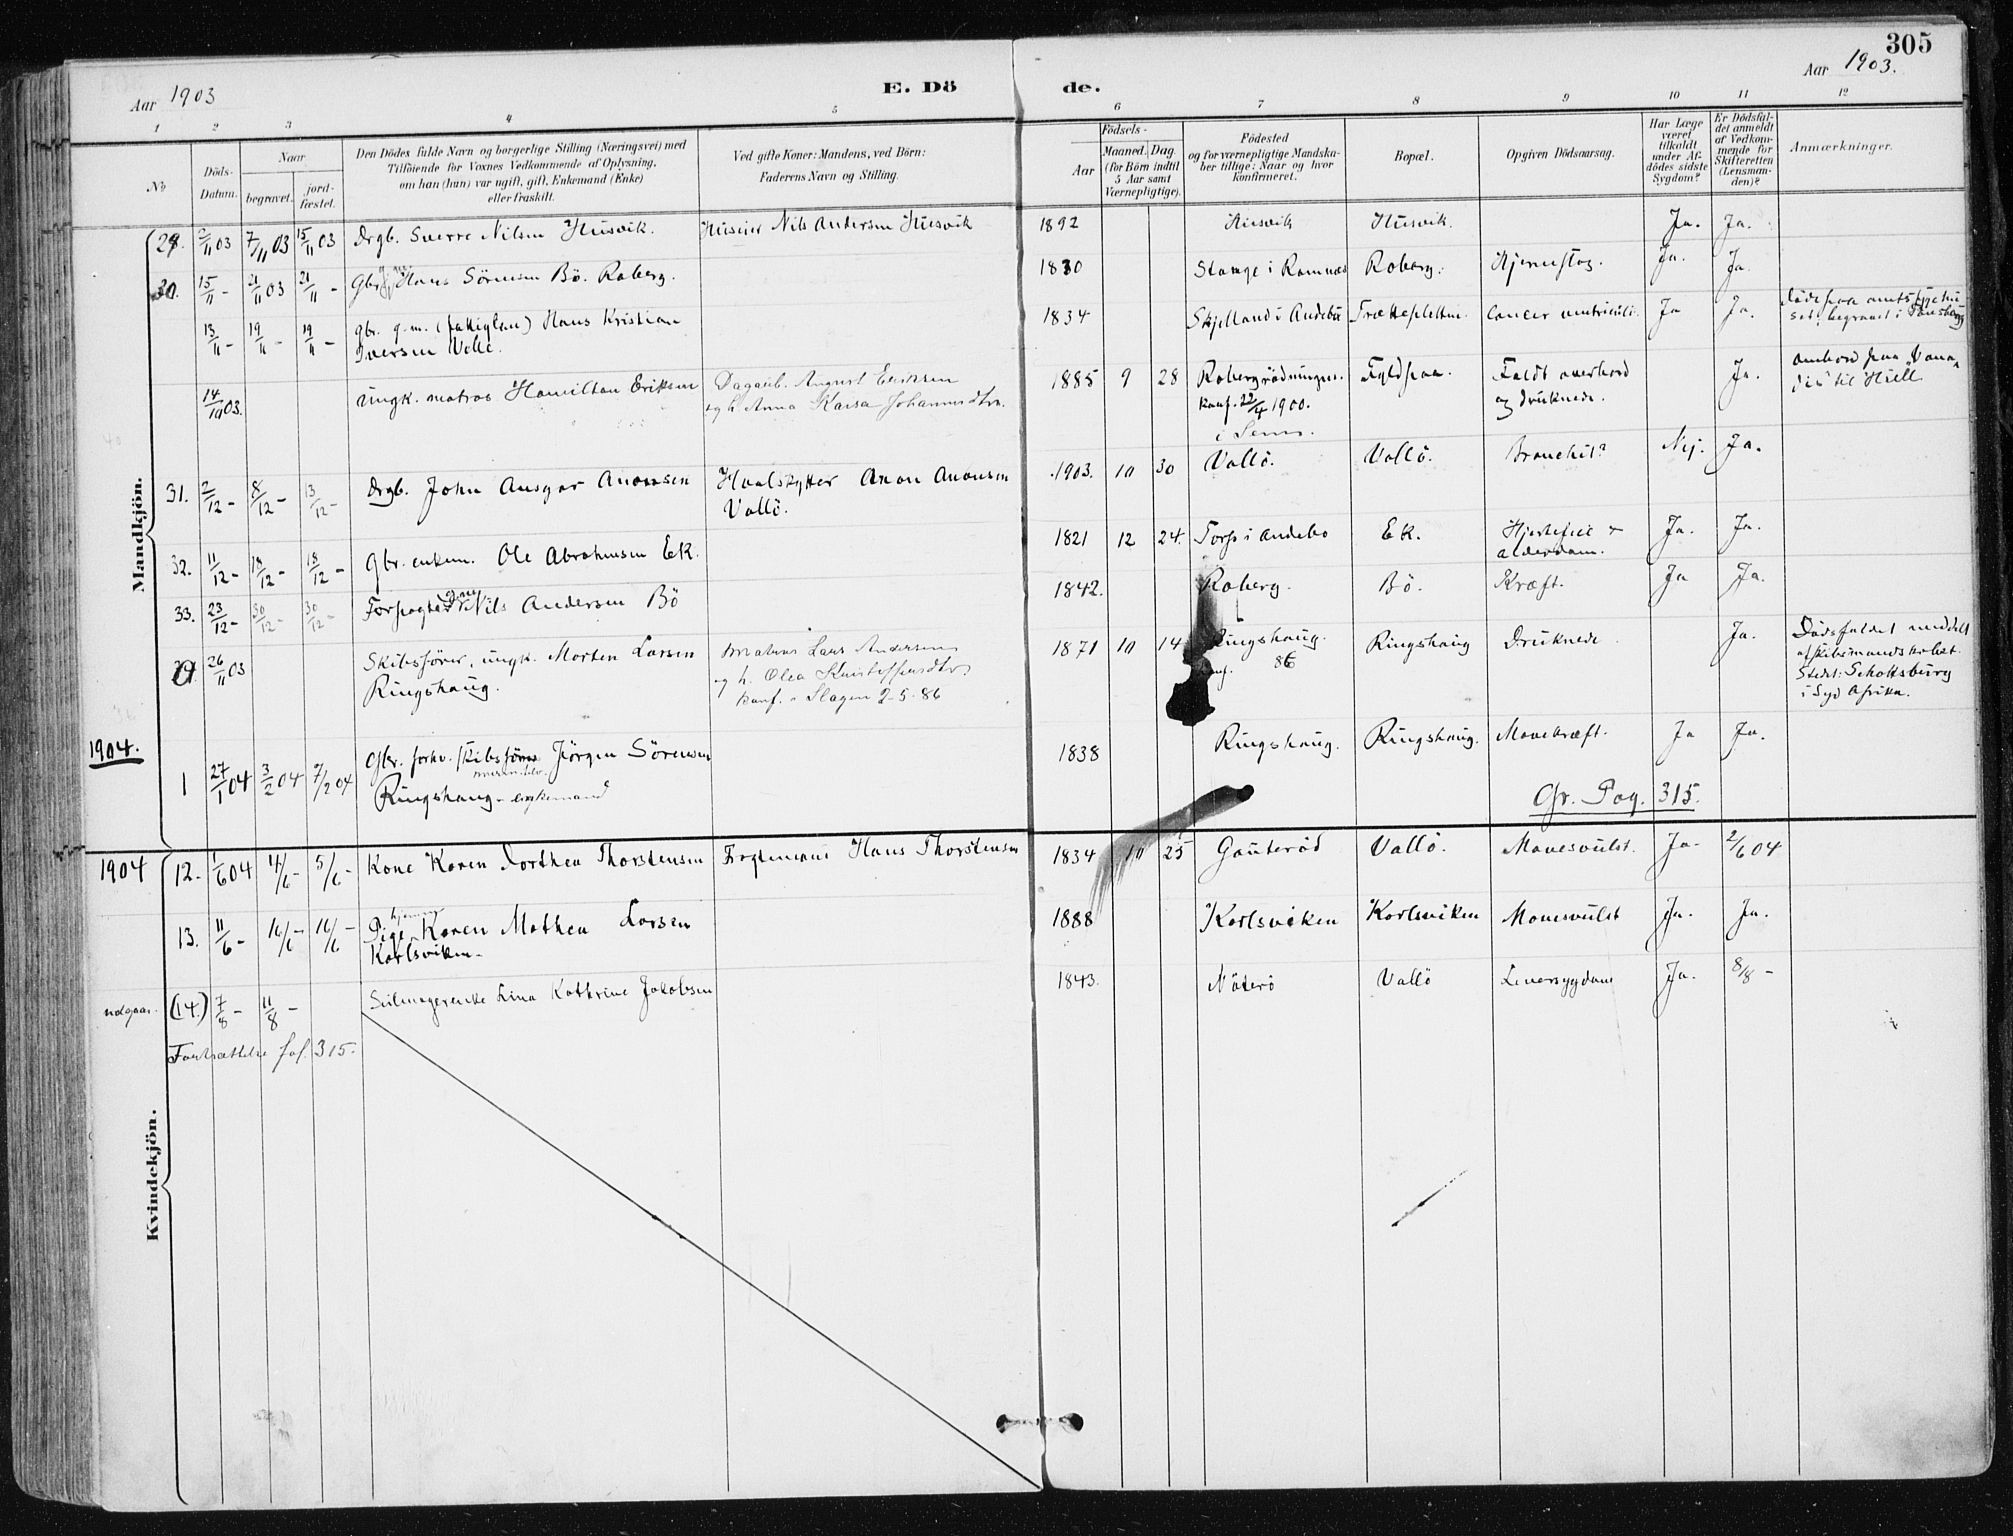 305
Aar 1903
E. Dö
de.
Aar 1903.
1 2 3 4 5 6 7 8 9 10 11 12
No
Döds-
Datum.
Naar
begravet.
jord-
fæstet.
Den Dödes fulde Navn og borgerlige Stilling (Næringsvei) med
Tilföiende for Voxnes Vedkommende af Oplysning,
om han (hun) var ugift, gift, Enkemand (Enke)
eller fraskilt.
Ved gifte Koner: Mandens, ved Börn:
Faderens Navn og Stilling.
Födsels-
Aar
Maaned. Dag
(for Börn indtil
5 Aar samt
Værnepligtige).
Födested
og for værnepligtige Mandska-
ber tillige: Naar og hvor
konfirmeret.
Bopæl.
Opgiven Dödsaarsag.
Har Læge
været
tilkaldt
under Af-
dödes sidste
Sygdom?
Er Dödsfal-
det anmeldt
af Vedkom-
mende for
Skifteretten
(Lensman-
den)?
Anmærkninger.
Mandkjön.
29. 2/11 03 7/11 03 15/11 03 Drgb. Sverre Nilsen Husvik. Huseier Nils Andersen Husvik 1892 Husvik Husvik. Ja. Ja.
30. 15/11 - 21/11 03 21/11 - Gbr. g.m. Hans Sörensen Bö. Roberg. 1830 Stange i Ramnæs Roberg. Hjerneslag. Ja. Ja.
13/11 - 19/11 - 19/11 - gbr. g.m. (fattiglem) Hans Kristian 1834 Skjelland i Andebu Træklepletten. Cancer ventriculi. Ja Ja. Döde paa amtssygehu-
Iversen Valle. set, begravet i Tønsberg
14/10 03. Ungk. matros Hamilton Eriksen Dagarb. August Eriksen 1885 9 28 Robergrödningen. Fyldpaa. Faldt overbord Ja. ombord paa "Vana-
og h. Anna Karsa Johannesdtr. konf. 22/4 1900. og druknede. dis" til Hull
i Sem.
31. 2/12 - 8/12 - 13/12 - Drgb. John Ansgar Anonsen Hvalskytter Anon Anonsen 1903. 10 30 Vallö. Vallö. Bronchit? Nej. Ja.
Vallö.
32. 11/12 - 18/12 - 18/12 - Gbr. enkem. Ole Abrahamsen Ek. 1821 12 24. Torp i Andebo Ek. Hjertefeil &
alderdom. Ja. Ja.
33. 23/12 - 30/12 - 30/12 - Forpagter g.m. Nils Andersen Bö 1842. Roberg. Bö. Kræft. Ja Ja.
26/11 03 Skibsförer, ungk. Morten Larsen Matros Lars Andersen 1871 10 14 Ringshaug. Ringshaug Druknede. Ja. Dödsfaldet meddelt
Ringshaug. og h. Olea Kristoffersdtr. konf. 86 af Skibsmandskabet.
konf. i Slagen 2-5-86 Stedet: Schottsburg
i Syd Afrika.
1904.
1 27/1 04 3/2 04 7/2 04 Gbr. forhv. skibsförer Jörgen Sörensen 1838 Ringshaug. Ringshaug. Mavekræft. Ja Ja.
Ringshaug - enkemand
Cfr. Pag. 315.
Kvindekjön.
1904 12. 1/6 04 4/6 - 5/6 - Kone Karen Dorthea Thorstensen Fragtemand Hans Thorstensen 1834 10 25 Gauteröd Vallö. Mavesvulst. Ja. 2/6 04
13. 11/6 - 16/6 - 16/6 - Pige hjemmev. Karen Mathea Larsen 1888 Karlsviken Karlsviken Mavesvulst Ja. Ja.
Karlsviken -
udgaar. (14.) 7/8 - 11/8 - Seilmagerenke Lina Kathrine Jakobsen 1843. Nöterö Vallö Leversygdom Ja. 8/8 -
Fortsættelse fol. 315.